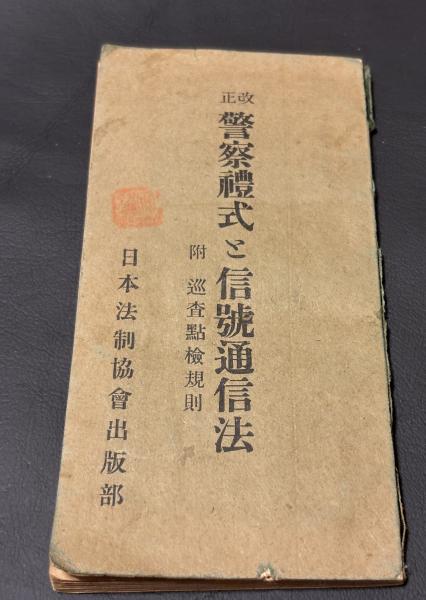 改正
警察禮式と信號通信法
附 巡査點檢規則
日本法制協會出版部